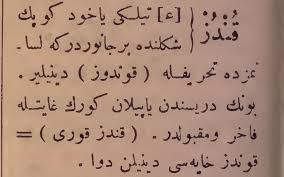 قُنْدُز { [ع] تیلکی یاخود کوپك
شکلنده بر جانوردرکه لسا-
نمزده تحریفله ( قوندوز ) دینیلیر.
بونك دریسندن یاپیلان کورك غایتله
فاخر و مقبولدر. ( قندز قوری ) =
قوندز خایه‌سی دینیلن دوا.